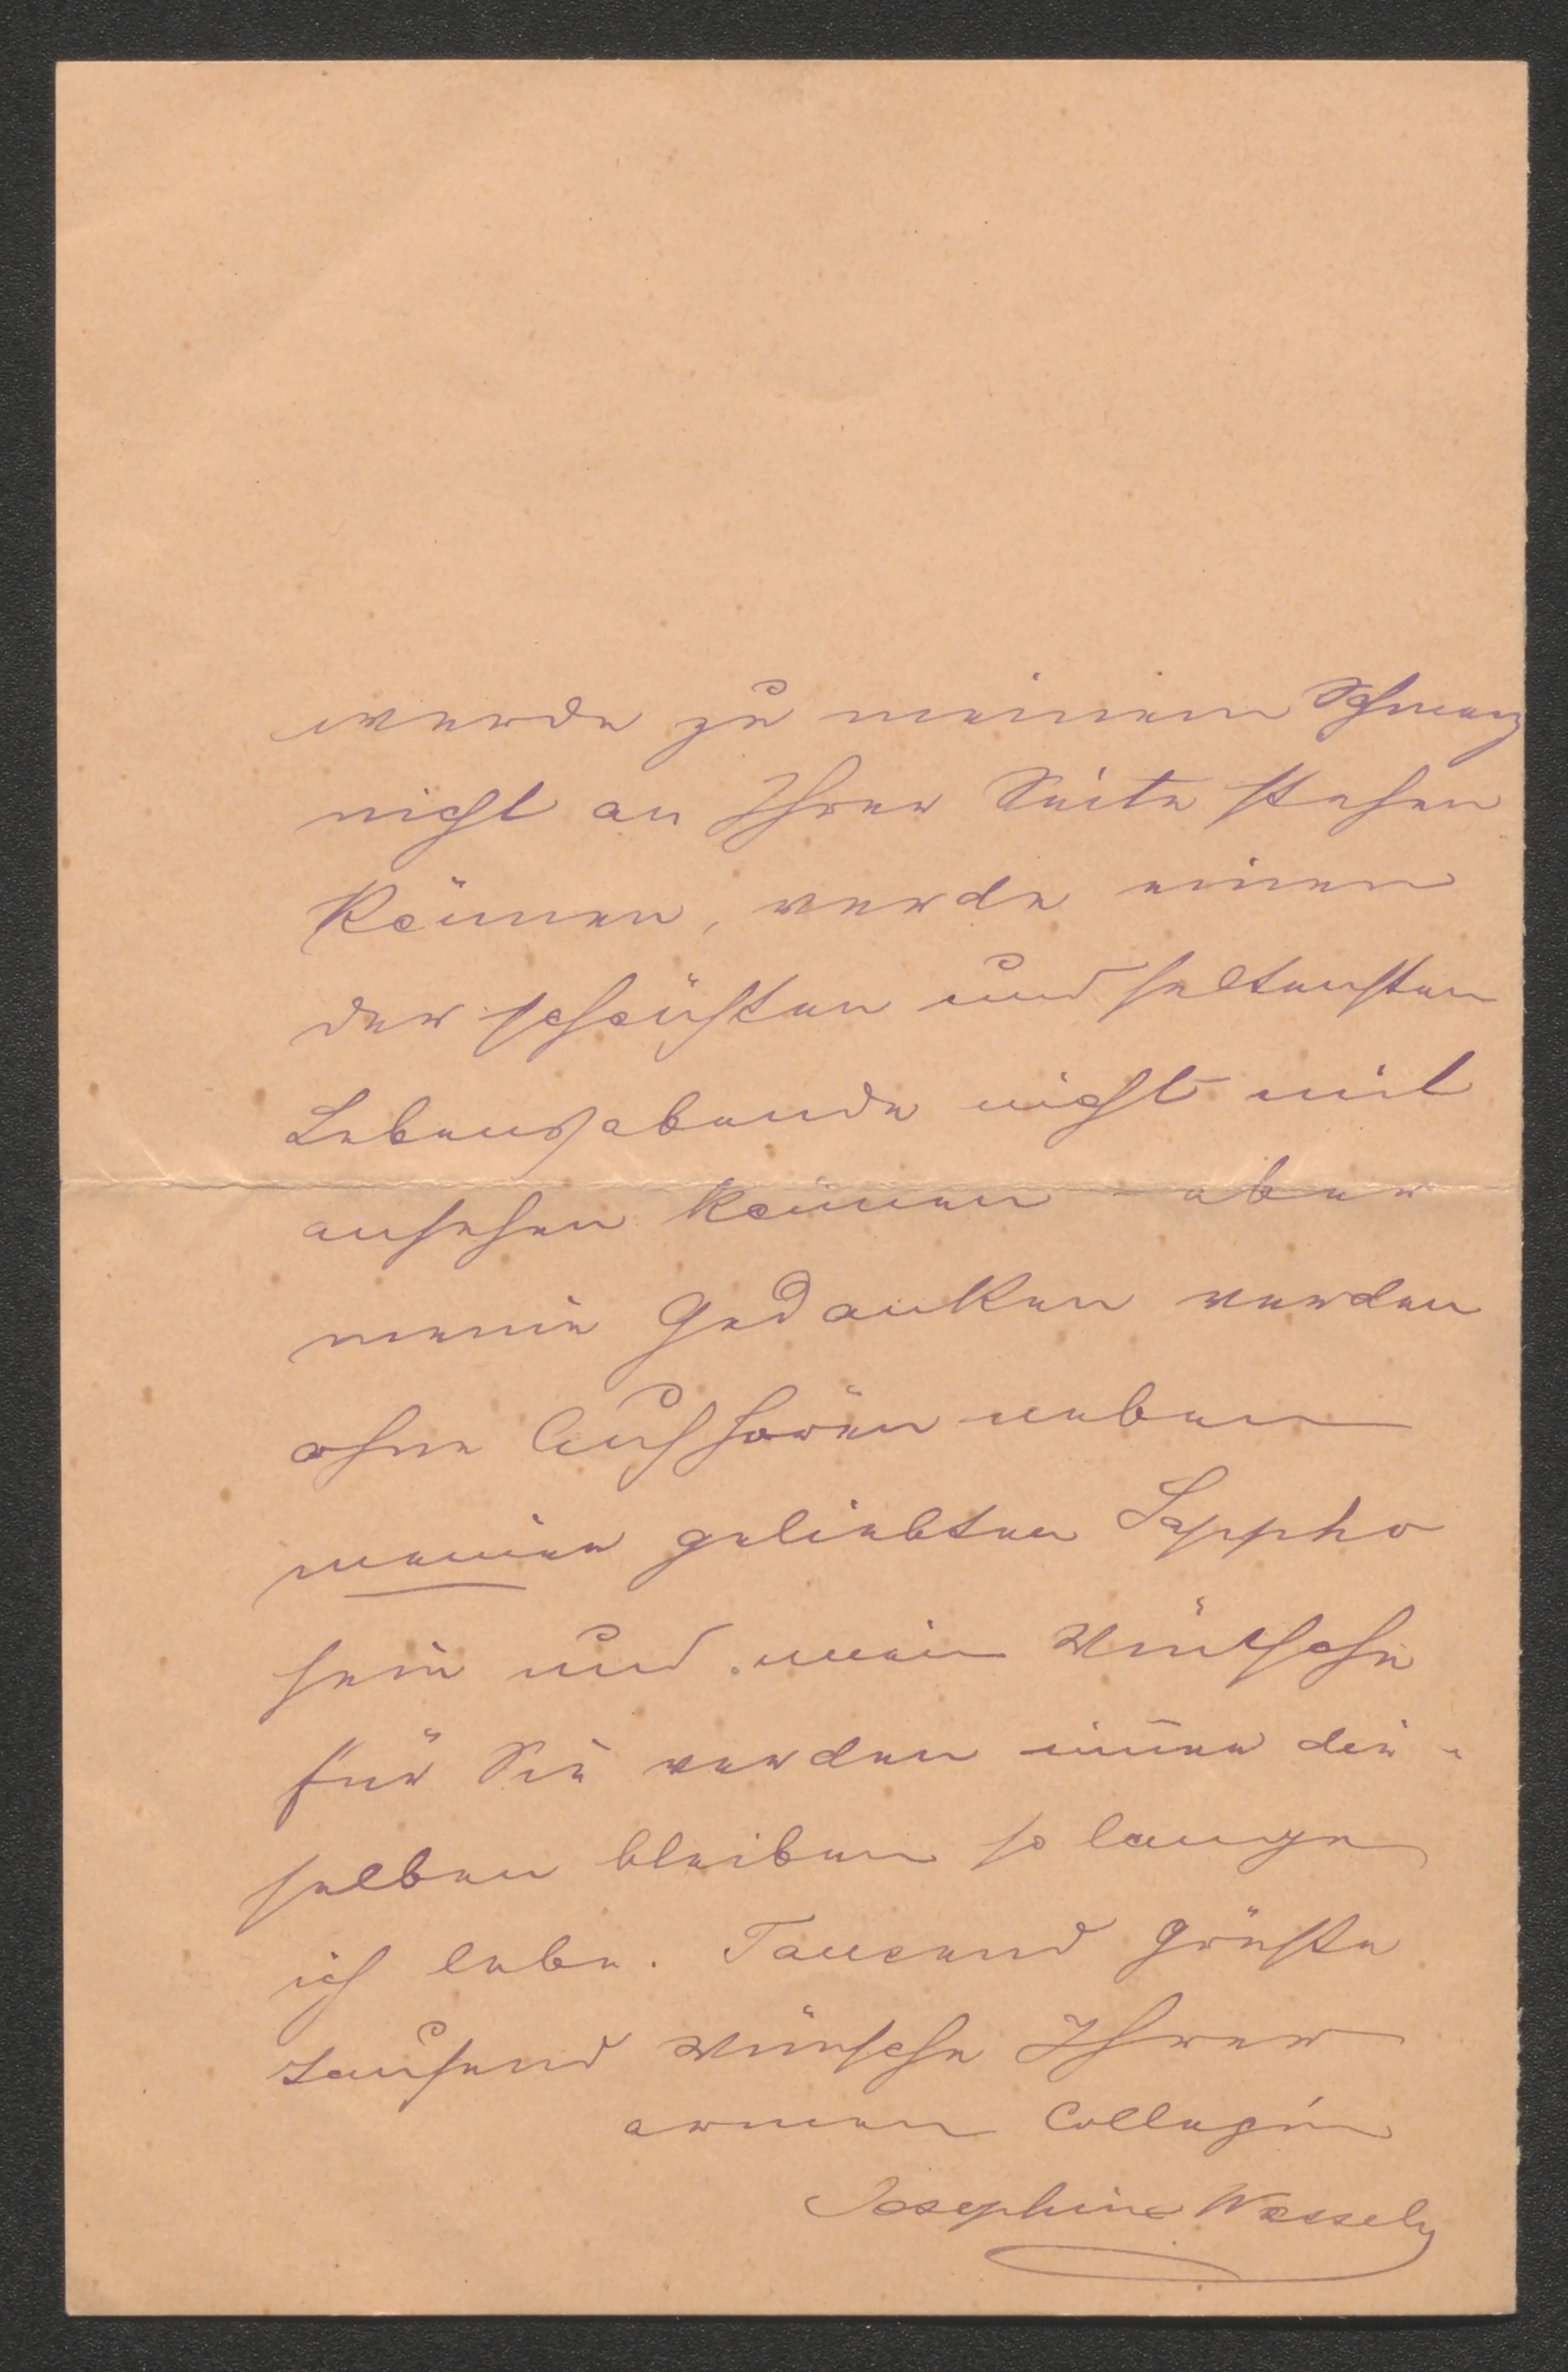 werde zu meinem Schmerz
nicht an Ihrer Seite stehen
können, werde einen
der schönsten und seltensten
Lebensabende nicht mit
ansehen können – aber
meine Gedanken werden
ohne Aufhören neben
meiner geliebten Sappho
sein und mein Wünsche
für Sie werden im̅er die-
selben bleiben so lange
ich lebe. Tausend Grüße
tausend Wünsche Ihrer
armen Collegin
Josephine Wessely